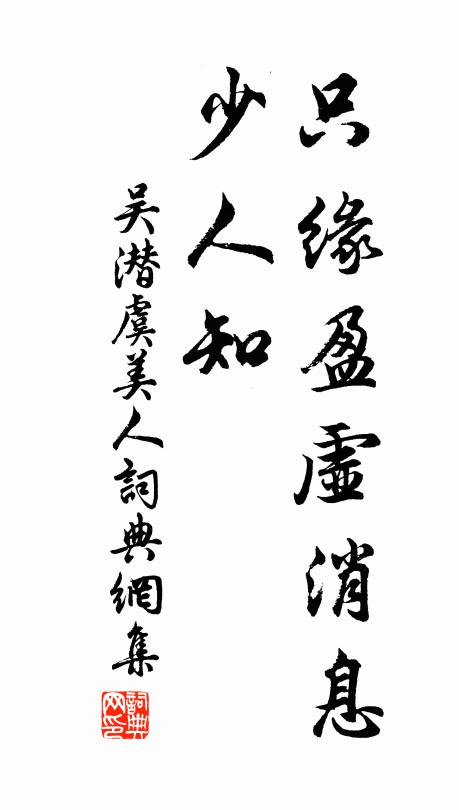 只緣盈虛消息
少人知
吴潛虞美人詞典網集
詞典网印